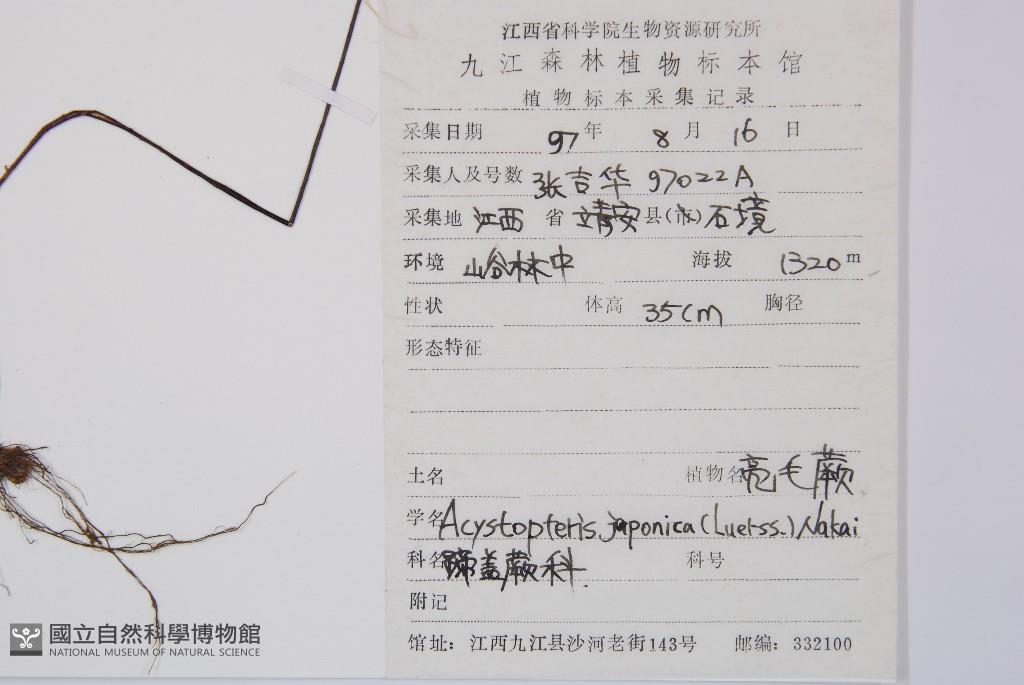 江西省科学院生物资源研究所
九江森林植物标本馆
植物标本采集记录
采集日期 97年 8月 16日
采集人及号数 张吉华 97022A
采集地 江西 省 靖安 县(市) 石境
环境 山谷林中 海拔 1320m
性状 体高 35cm 胸径
形态特征
土名 植物名 亮毛蕨
学名 Acystopteris japonica (Luerss.) Nakai
科名 蹄盖蕨科 科号
附记
馆址: 江西九江县沙河老街143号 邮编: 332100
國立自然科學博物館
NATIONAL MUSEUM OF NATURAL SCIENCE